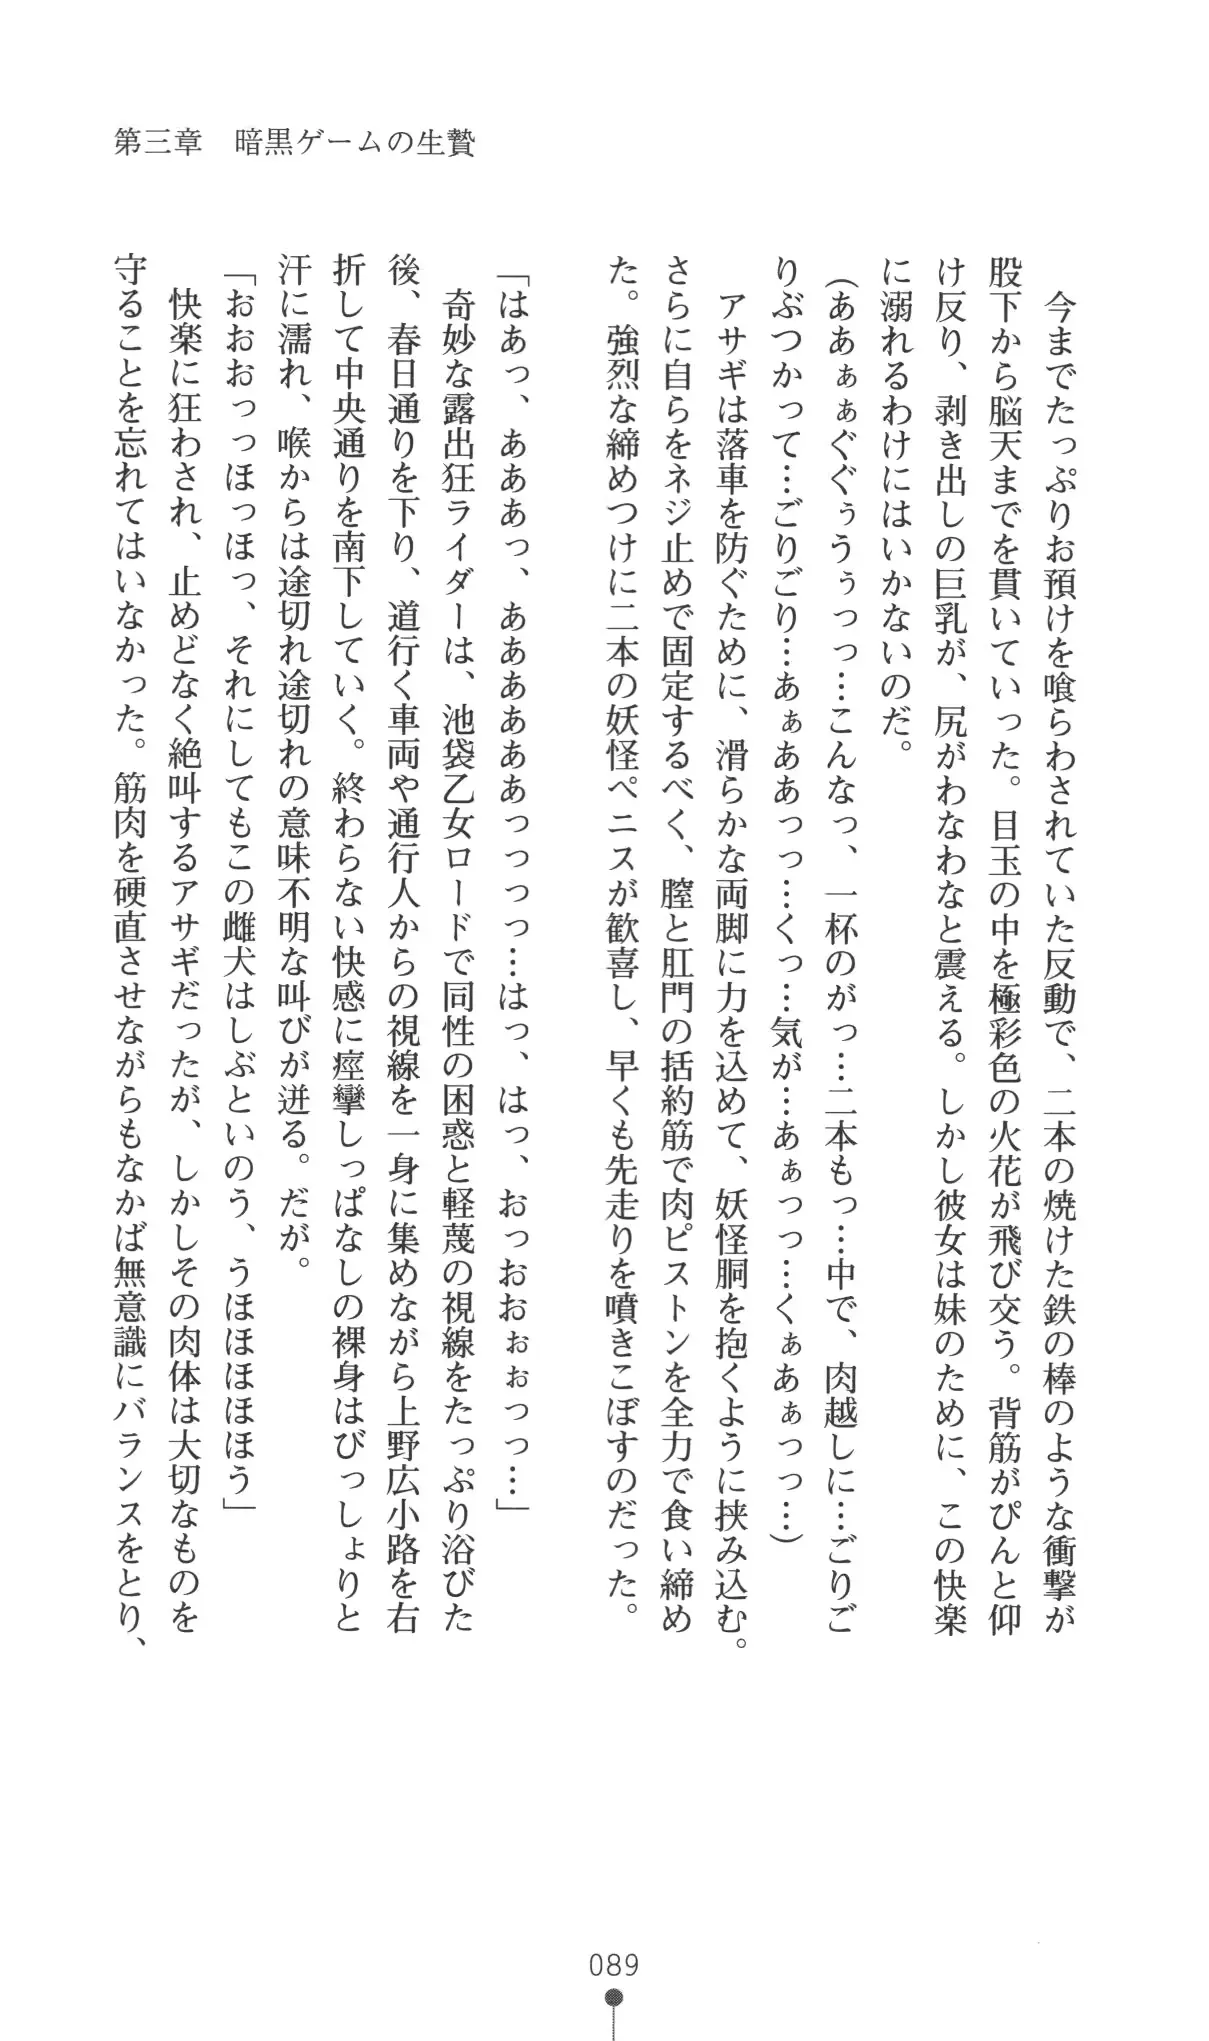 第三章　暗黒ゲームの生贄
　今までたっぷりお預けを喰らわされていた反動で、二本の焼けた鉄の棒のような衝撃が
股下から脳天までを貫いていった。目玉の中を極彩色の火花が飛び交う。背筋がぴんと仰
け反り、剥き出しの巨乳が、尻がわなわなと震える。しかし彼女は妹のために、この快楽
に溺れるわけにはいかないのだ。
（ああぁぁぐぐぅうぅっっ…こんなっ、一杯のがっ…二本もっ…中で、肉越しに…ごりご
りぶつかって…ごりごり…あぁああっっ…くっ…気が…あぁっっ…くぁあぁっっ…）
　アサギは落車を防ぐために、滑らかな両脚に力を込めて、妖怪胴を抱くように挟み込む。
さらに自らをネジ止めで固定するべく、膣と肛門の括約筋で肉ピストンを全力で食い締め
た。強烈な締めつけに二本の妖怪ペニスが歓喜し、早くも先走りを噴きこぼすのだった。
「はあっ、あああっ、ああああああっっっっ…はっ、はっ、おっおおぉぉっっ…」
　奇妙な露出狂ライダーは、池袋乙女ロードで同性の困惑と軽蔑の視線をたっぷり浴びた
後、春日通りを下り、道行く車両や通行人からの視線を一身に集めながら上野広小路を右
折して中央通りを南下していく。終わらない快感に痙攣しっぱなしの裸身はびっしょりと
汗に濡れ、喉からは途切れ途切れの意味不明な叫びが迸る。だが。
「おおおっっほっほっ、それにしてもこの雌犬はしぶといのう、うほほほほほう」
　快楽に狂わされ、止めどなく絶叫するアサギだったが、しかしその肉体は大切なものを
守ることを忘れてはいなかった。筋肉を硬直させながらもなかば無意識にバランスをとり、
089